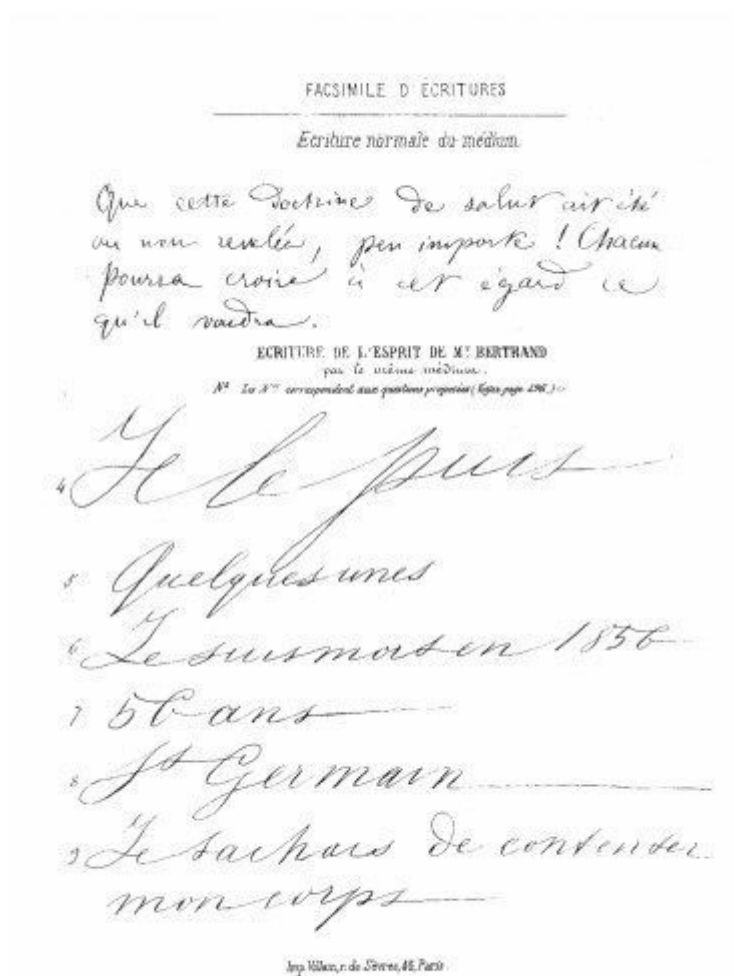 FACSIMILE D ECRITURES
Ecriture normale du médium
Que cette Doctrine De salut ait été
ou non revelée, peu importe ! Chacun
pourra croire à cet égard ce
qu'il voudra.
ECRITURE DE L'ESPRIT DE Mr BERTRAND
par le même médium.
Na Les Nos correspondent aux questions proposées (Voyez page 196)
4 Je le puis
5 Quelques unes
6 Je suis mort en 1856
7 56 ans
8 St Germain
9 Je tachais de contenter
mon corps
Imp. Villain, r. de Sèvres, 45, Paris